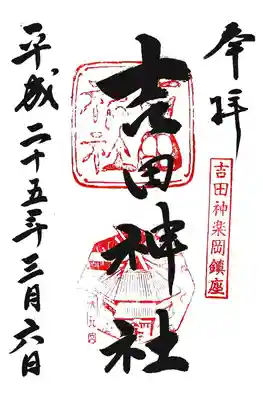 奉拝
吉田神楽岡鎮座
吉田神社
平成二十五年三月六日